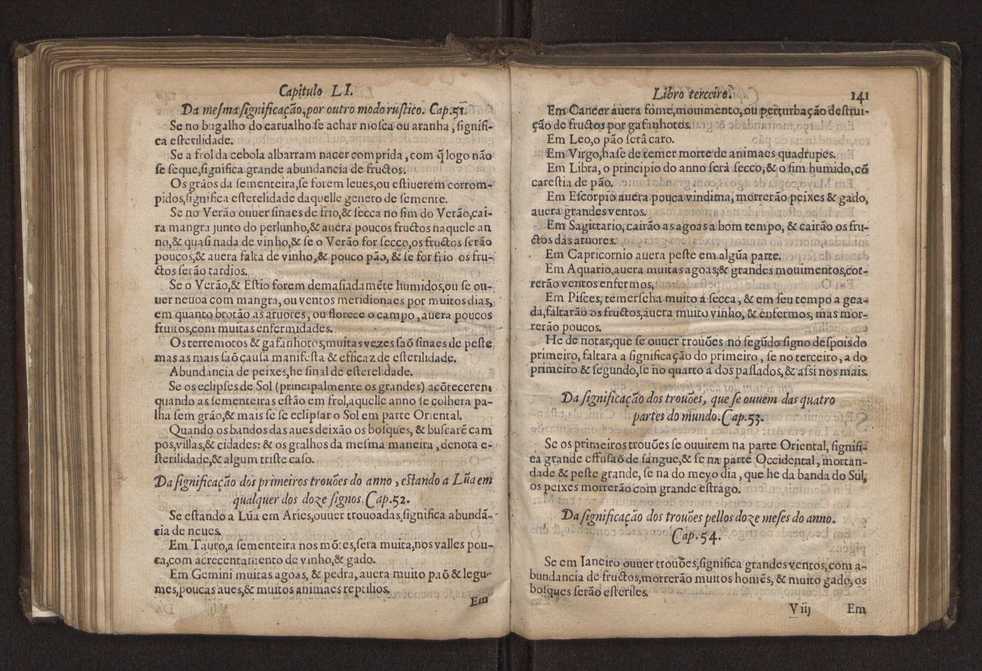 Capitulo LI.
Da mesma significação, por outro modo rustico. Cap. 51.
Se no bugalho do carualho se achar mosca ou aranha, signifi-
ca esterilidade.
Se a frol da cebola albarram nacer comprida, com q̃ logo não
se seque, significa grande abundancia de fructos.
Os grãos da sementeira, se forem leues, ou estiuerem corrom-
pidos, significa estereledade daquelle genero de semente.
Se no Verão ouuer sinaes de frio, & secca no fim do Verão, cai-
ra mangra junto do perlunho, & auera poucos fructos naquele an
no, & quasi nada de vinho, & se o Verão for secco, os fructos serão
poucos, & auera falta de vinho, & pouco pão, & se for frio os fru-
ctos serão tardios.
Se o Verão, & Estio forem demasiadamẽte humidos, ou se ou-
uer neuoa com mangra, ou ventos meridionaes por muitos dias,
em quanto brotão as aruores, ou florece o campo, auera poucos
fruitos, com muitas enfermidades.
Os terremotos & gafanhotos, muitas vezes saõ sinaes de peste
mas as mais saõ causa manifesta & efficaz de esterilidade.
Abundancia de peixes, he sinal de esterelidade.
Se os eclipses de Sol (principalmente os grandes) acõtecerem
quando as sementeiras estão em frol, aquelle anno se colhera pa-
lha sem grão, & mais se se eclipsar o Sol em parte Oriental.
Quando os bandos das aues deixão os bosques, & buscarẽ cam
pos, villas, & cidades: & os gralhos da mesma maneira, denota e-
sterilidade, & algum triste caso.
Da significação dos primeiros trouões do anno, estando a Lũa em
qualquer dos doze signos. Cap. 52.
Se estando a Lũa em Aries, ouuer trouoadas, significa abundã-
cia de neues.
Em Tauro, a sementeira nos mõtes, sera muita, nos valles pou-
ca, com acrecentamento de vinho, & gado.
Em Gemini muitas agoas, & pedra, auera muito paõ & legu-
mes, poucas aues, & muitos animaes reptilios.
Em
Libro terceiro. 141
Em Cancer auera fome, mouimento, ou perturbação destrui-
ção de fructos por gafanhotos.
Em Leo, o pão serà caro.
Em Virgo, hase de temer morte de animaes quadrupes.
Em Libra, o principio do anno serà secco, & o fim humido, cõ
carestia de pão.
Em Escorpio auera pouca vindima, morrerão peixes & gado,
auera grandes ventos.
Em Sagittario, cairão as agoas a bom tempo, & cairão os fru-
ctos das aruores.
Em Capricornio auera peste em algũa parte.
Em Aquario, auera muitas agoas, & grandes mouimentos, cor-
rerão ventos enfermos.
Em Pisces, temerseha muito a secca, & em seu tempo a gea-
da, faltarão os fructos, auera muito vinho, & enfermos, mas mor-
rerão poucos.
He de notar, que se ouuer trouões no segũdo signo despois do
primeiro, faltara a significação do primeiro, se no terceiro, a do
primeiro & segundo, se no quarto a dos passados, & assi nos mais.
Da significação dos trouões, que se ouuem das quatro
partes do mundo. Cap. 53.
Se os primeiros trouões se ouuirem na parte Oriental, signifi-
ca grande effusaõ de sangue, & se na parte Occidental, mortan-
dade & peste grande, se na do meyo dia, que he da banda do Sul,
os peixes morrerão com grande estrago.
Da significação dos trouões pellos doze meses do anno.
Cap. 54.
Se em Ianeiro ouuer trouões, significa grandes ventos, com a-
bundancia de fructos, morrerão muitos homẽs, & muito gado, os
bosques serão esteriles.
V iij Em